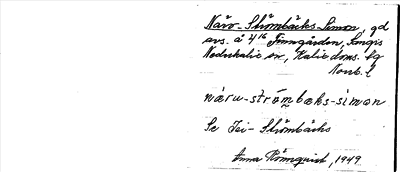 Näru-Strömbäcks-Simon, gd
avs. å 4/16 Finngården, Songis
Nederkalix sn, Kalix doms. fg
Norrb. l
nàru-strómbæks-siman
Se Isi-Strömbäcks
Anna Rönnquist, 1949